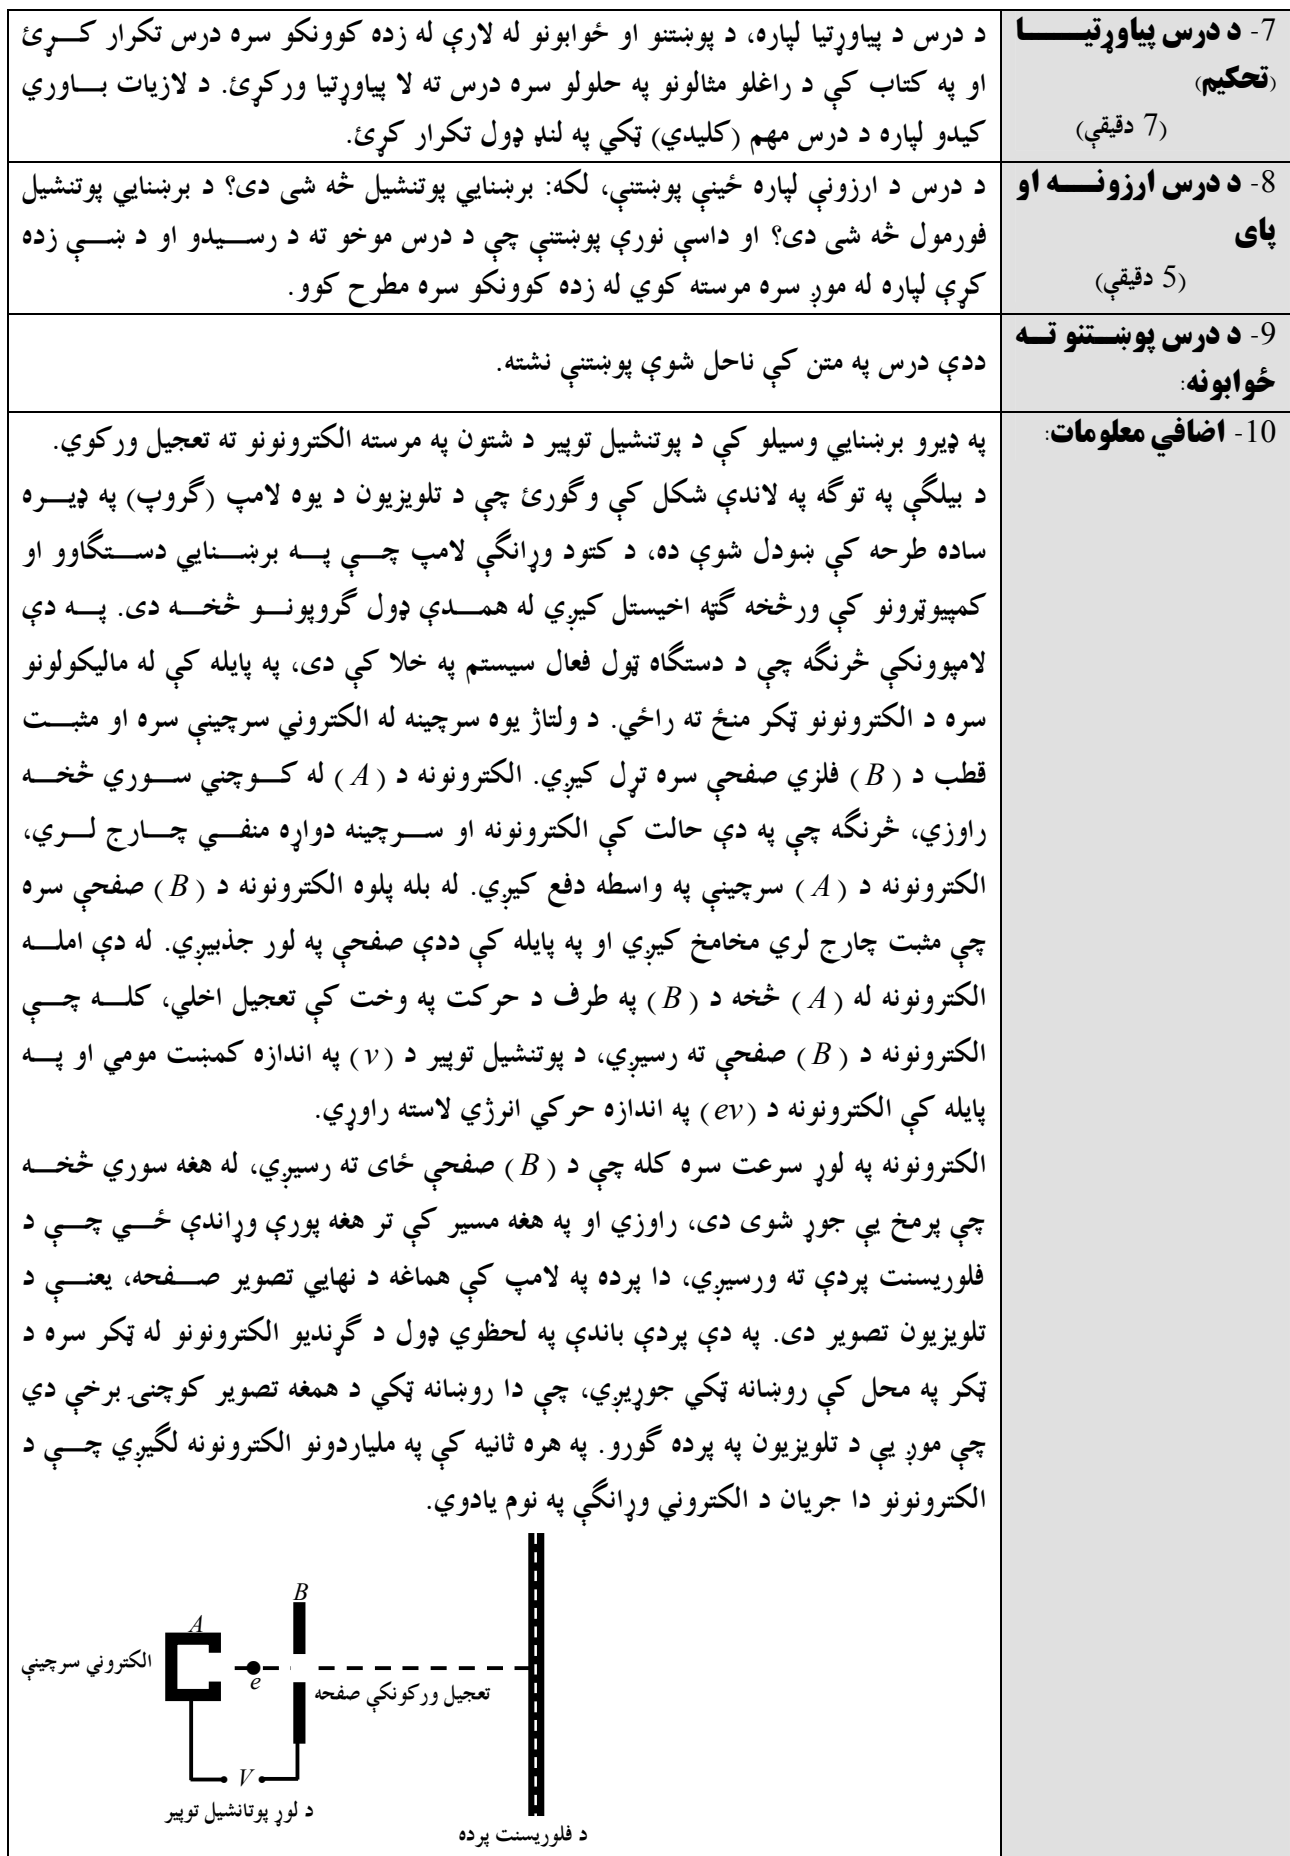 7- د درس پیاوړتیا
(تحکیم)
(7 دقیقې)
د درس د پیاوړتیا لپاره، د پوښتنو او ځوابونو له لارې له زده کوونکو سره درس تکرار کړئ
او په کتاب کې د راغلو مثالونو په حلولو سره درس ته لا پیاوړتیا ورکړئ. د لازیات باوري
کیدو لپاره د درس مهم (کلیدي) ټکي په لنډ ډول تکرار کړئ.
8- د درس ارزونه او
پای
(5 دقیقې)
د درس د ارزونې لپاره ځینې پوښتنې، لکه: برښنایي پوتنشیل څه شی دی؟ د برښنایي پوتنشیل
فورمول څه شی دی؟ او داسې نورې پوښتنې چې د درس موخو ته د رسیدو او د ښې زده
کړې لپاره له موږ سره مرسته کوي له زده کوونکو سره مطرح کوو.
9- د درس پوښتنو ته
ځوابونه:
ددې درس په متن کې ناحل شوې پوښتنې نشته.
10- اضافي معلومات:
په ډیرو برښنایي وسیلو کې د پوتنشیل توپیر د شتون په مرسته الکترونونو ته تعجیل ورکوي.
د بیلګې په توګه په لاندې شکل کې وګورئ چې د تلویزیون د یوه لامپ (ګروپ) په ډیره
ساده طرحه کې ښودل شوې ده، د کتود وړانګې لامپ چې په برښنایي دستګاوو او
کمپیوټرونو کې ورڅخه ګټه اخیستل کیږي له همدې ډول ګروپونو څخه دی. په دې
لامپوونکې څرنګه چې د دستګاه ټول فعال سیستم په خلا کې دی، په پایله کې له مالیکولونو
سره د الکترونونو ټکر منځ ته راځي. د ولتاژ یوه سرچینه له الکتروني سرچینې سره او مثبت
قطب د (B) فلزي صفحې سره تړل کیږي. الکترونونه د (A) له کوچني سوري څخه
راوزي، څرنګه چې په دې حالت کې الکترونونه او سرچینه دواړه منفي چارج لري،
الکترونونه د (A) سرچینې په واسطه دفع کیږي. له بله پلوه الکترونونه د (B) صفحې سره
چې مثبت چارج لري مخامخ کیږي او په پایله کې ددې صفحې په لور جذبیږي. له دې امله
الکترونونه له (A) څخه د (B) په طرف د حرکت په وخت کې تعجیل اخلي، کله چې
الکترونونه د (B) صفحې ته رسیږي، د پوتنشیل توپیر د (v) په اندازه کمښت مومي او په
پایله کې الکترونونه د (ev) په اندازه حرکي انرژي لاسته راوړي.
الکترونونه په لوړ سرعت سره کله چې د (B) صفحې ځای ته رسیږي، له هغه سوري څخه
چې پرمخ یې جوړ شوی دی، راوزي او په هغه مسیر کې تر هغه پورې وړاندې ځي چې د
فلوریسنت پردې ته ورسیږي، دا پرده په لامپ کې هماغه د نهایي تصویر صفحه، یعنې د
تلویزیون تصویر دی. په دې پردې باندې په لحظوي ډول د ګړندیو الکترونونو له ټکر سره د
ټکر په محل کې روښانه ټکي جوړیږي، چې دا روښانه ټکي د همغه تصویر کوچنۍ برخې دي
چې موږ یې د تلویزیون په پرده ګورو. په هره ثانیه کې په ملیاردونو الکترونونه لګیږي چې د
الکترونونو دا جریان د الکتروني وړانګې په نوم یادوي.
B
A
الکتروني سرچینې
e
تعجیل ورکونکې صفحه
V
د لوړ پوتانشیل توپیر
د فلوریسنت پرده